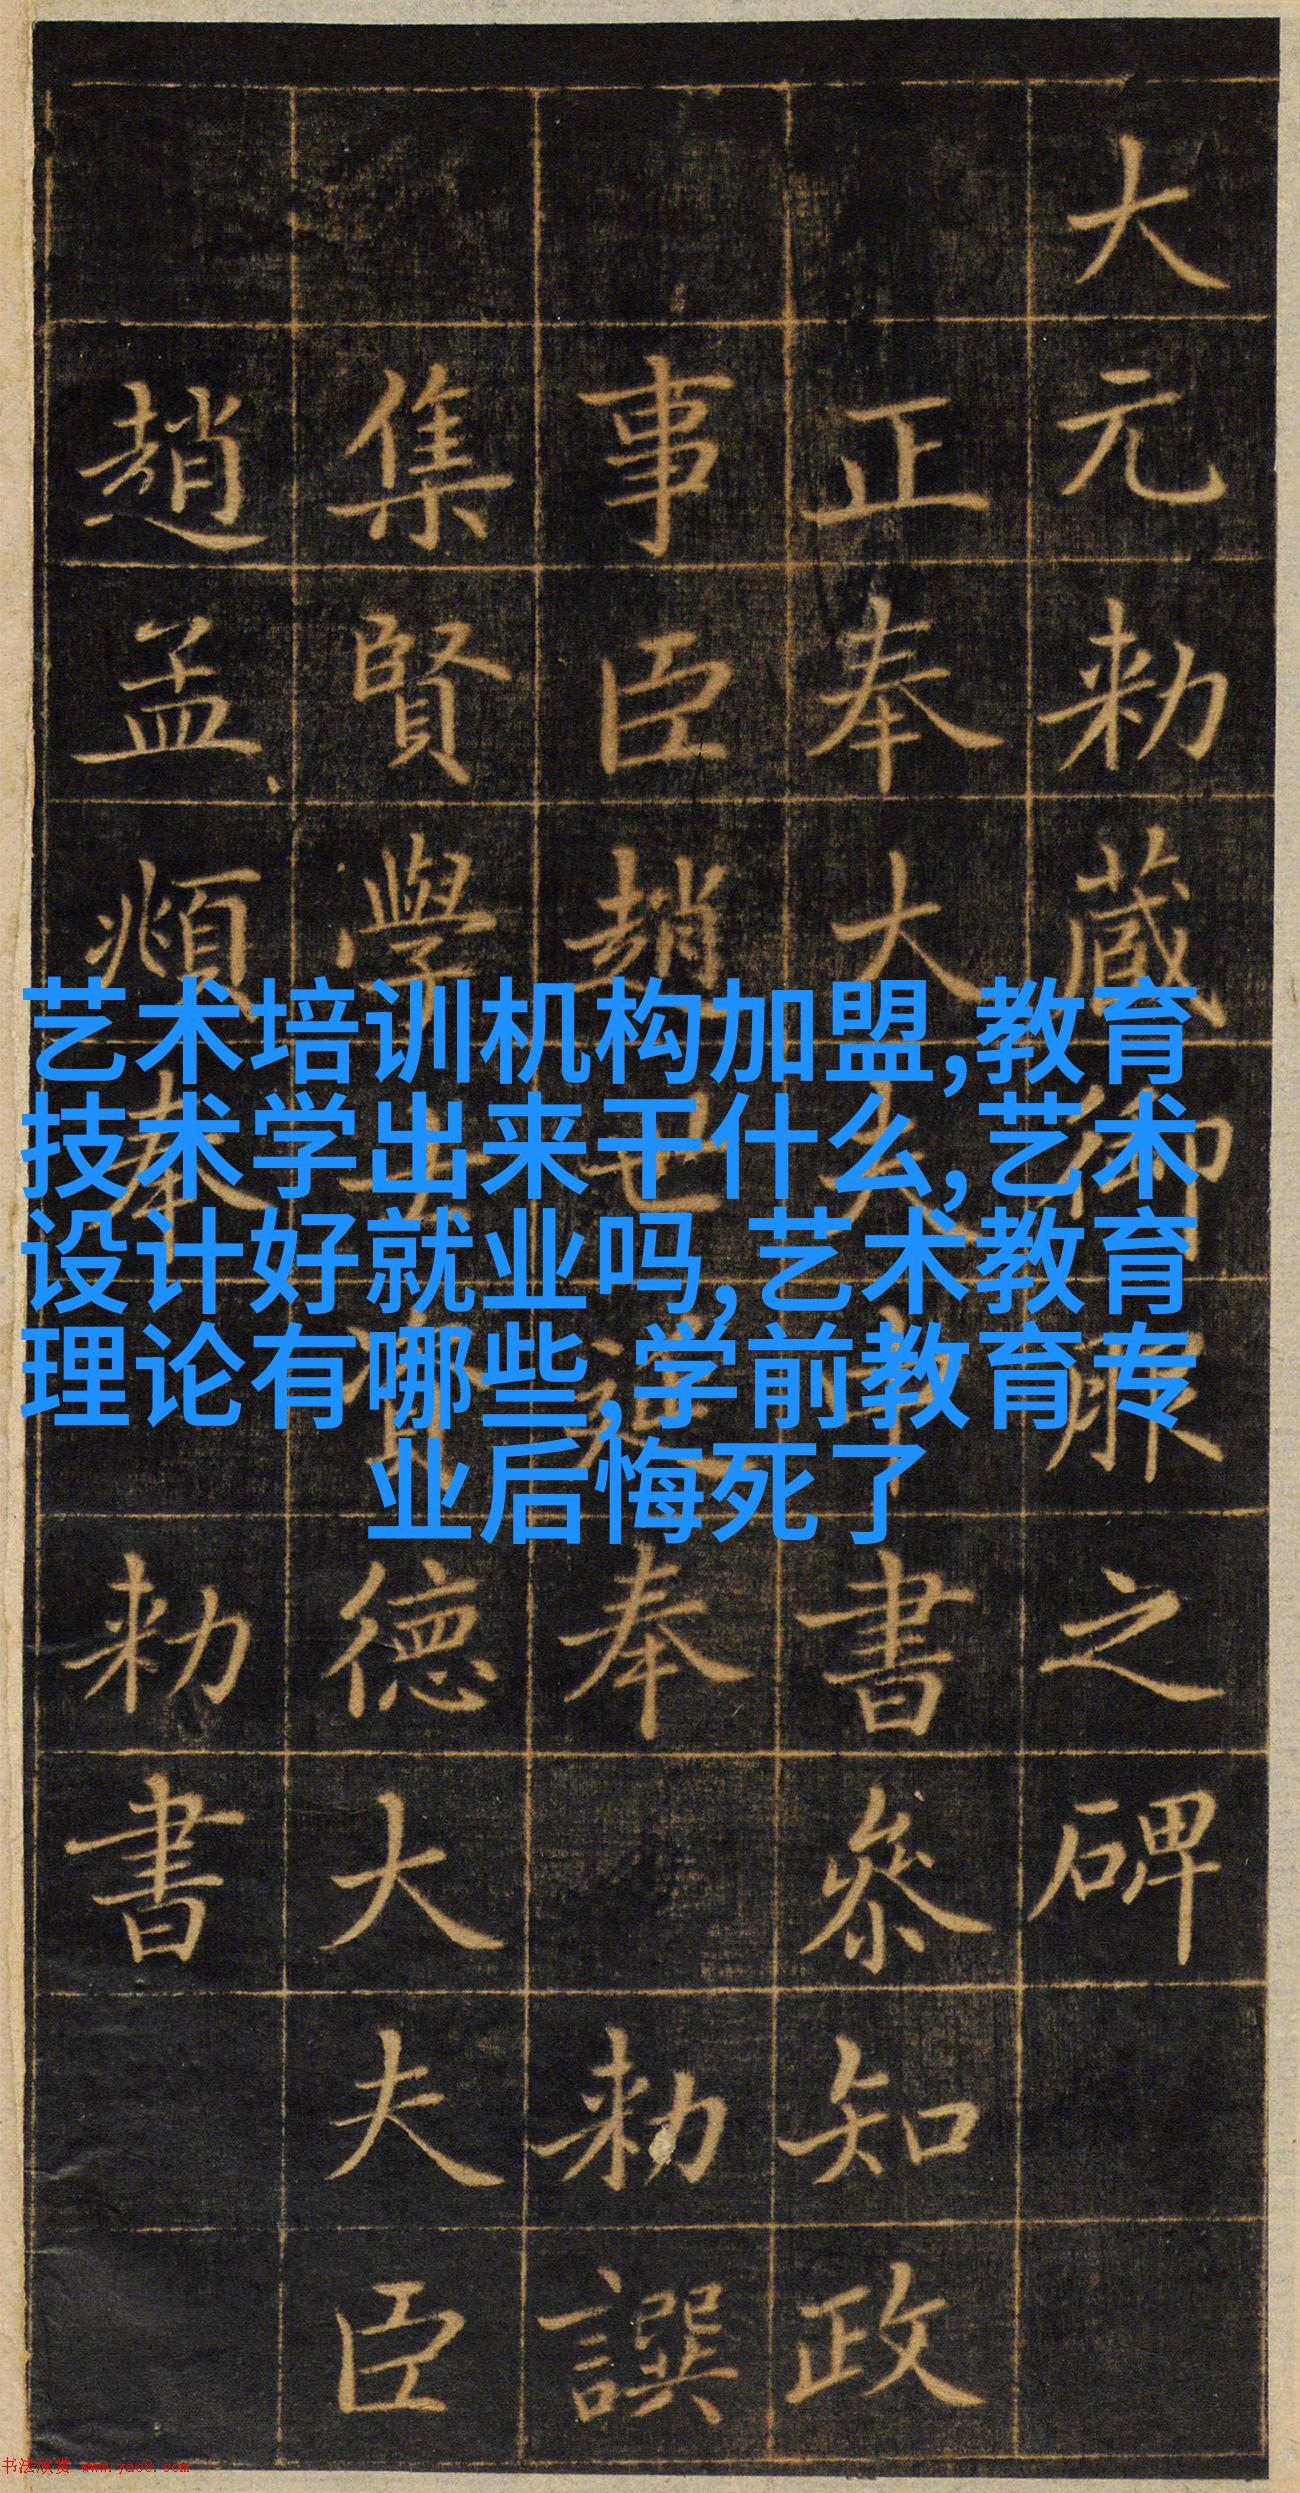 大元勑蔵御服之碑
正奉大夫中書參知政
事臣趙世延奉勑譔
集賢學士資德大夫臣
趙孟頫奉勑書
艺术培训机构加盟,教育
技术学出来干什么,艺术
设计好就业吗,艺术教育
理论有哪些,学前教育专
业后悔死了
书法欣赏 www.yac8.com